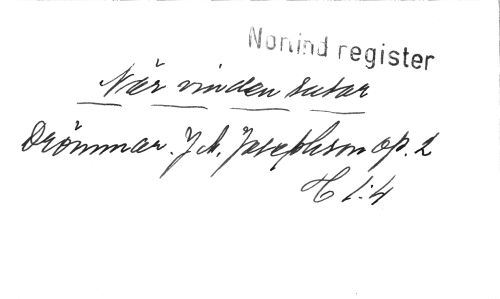 Norlind register
När vinden susar
Drömmar. J. A. Josephson op. 2
H 1:4